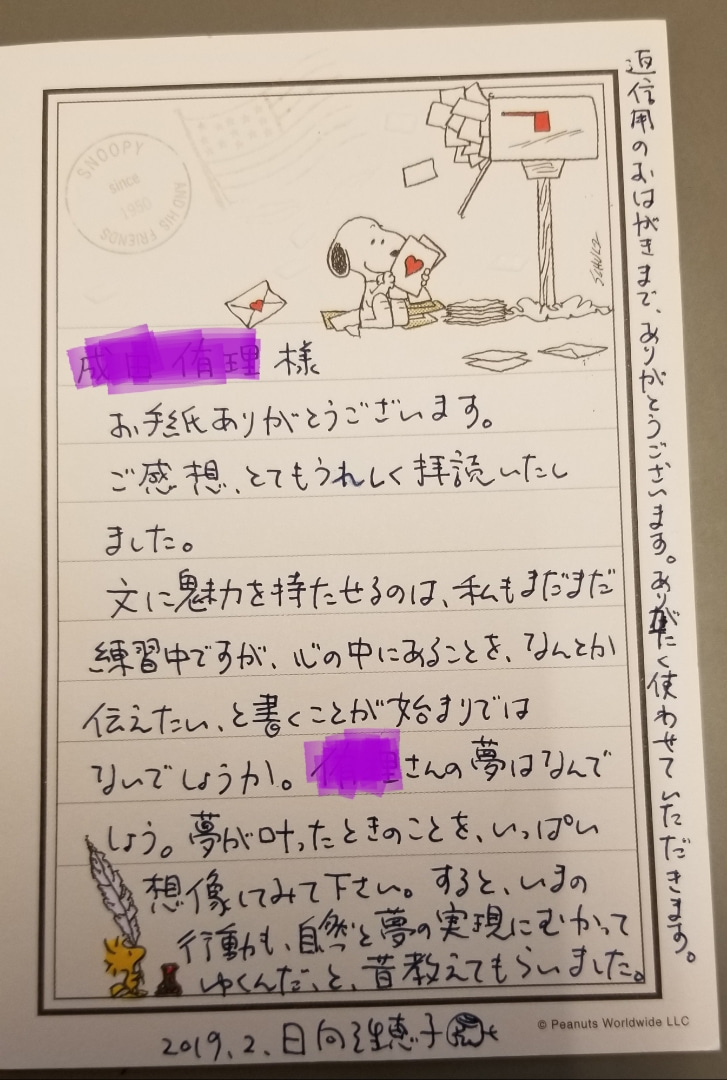 SNOOPY
since
1950
AND HIS FRIENDS
SCHULZ
様
お手紙ありがとうございます。
ご感想、とてもうれしく拝読いたし
ました。
文に魅力を持たせるのは、私もまだまだ
練習中ですが、心の中にあることを、なんとか
伝えたい、と書くことが始まりでは
ないでしょうか。 さんの夢はなんで
しょう。夢が叶ったときのことを、いっぱい
想像してみて下さい。すると、いまの
行動も、自然と夢の実現にむかって
ゆくんだ、と、昔教えてもらいました。
返信用のおはがきまで、ありがとうございます。ありがたく使わせていただきます。
2019.2.日向理恵子
© Peanuts Worldwide LLC